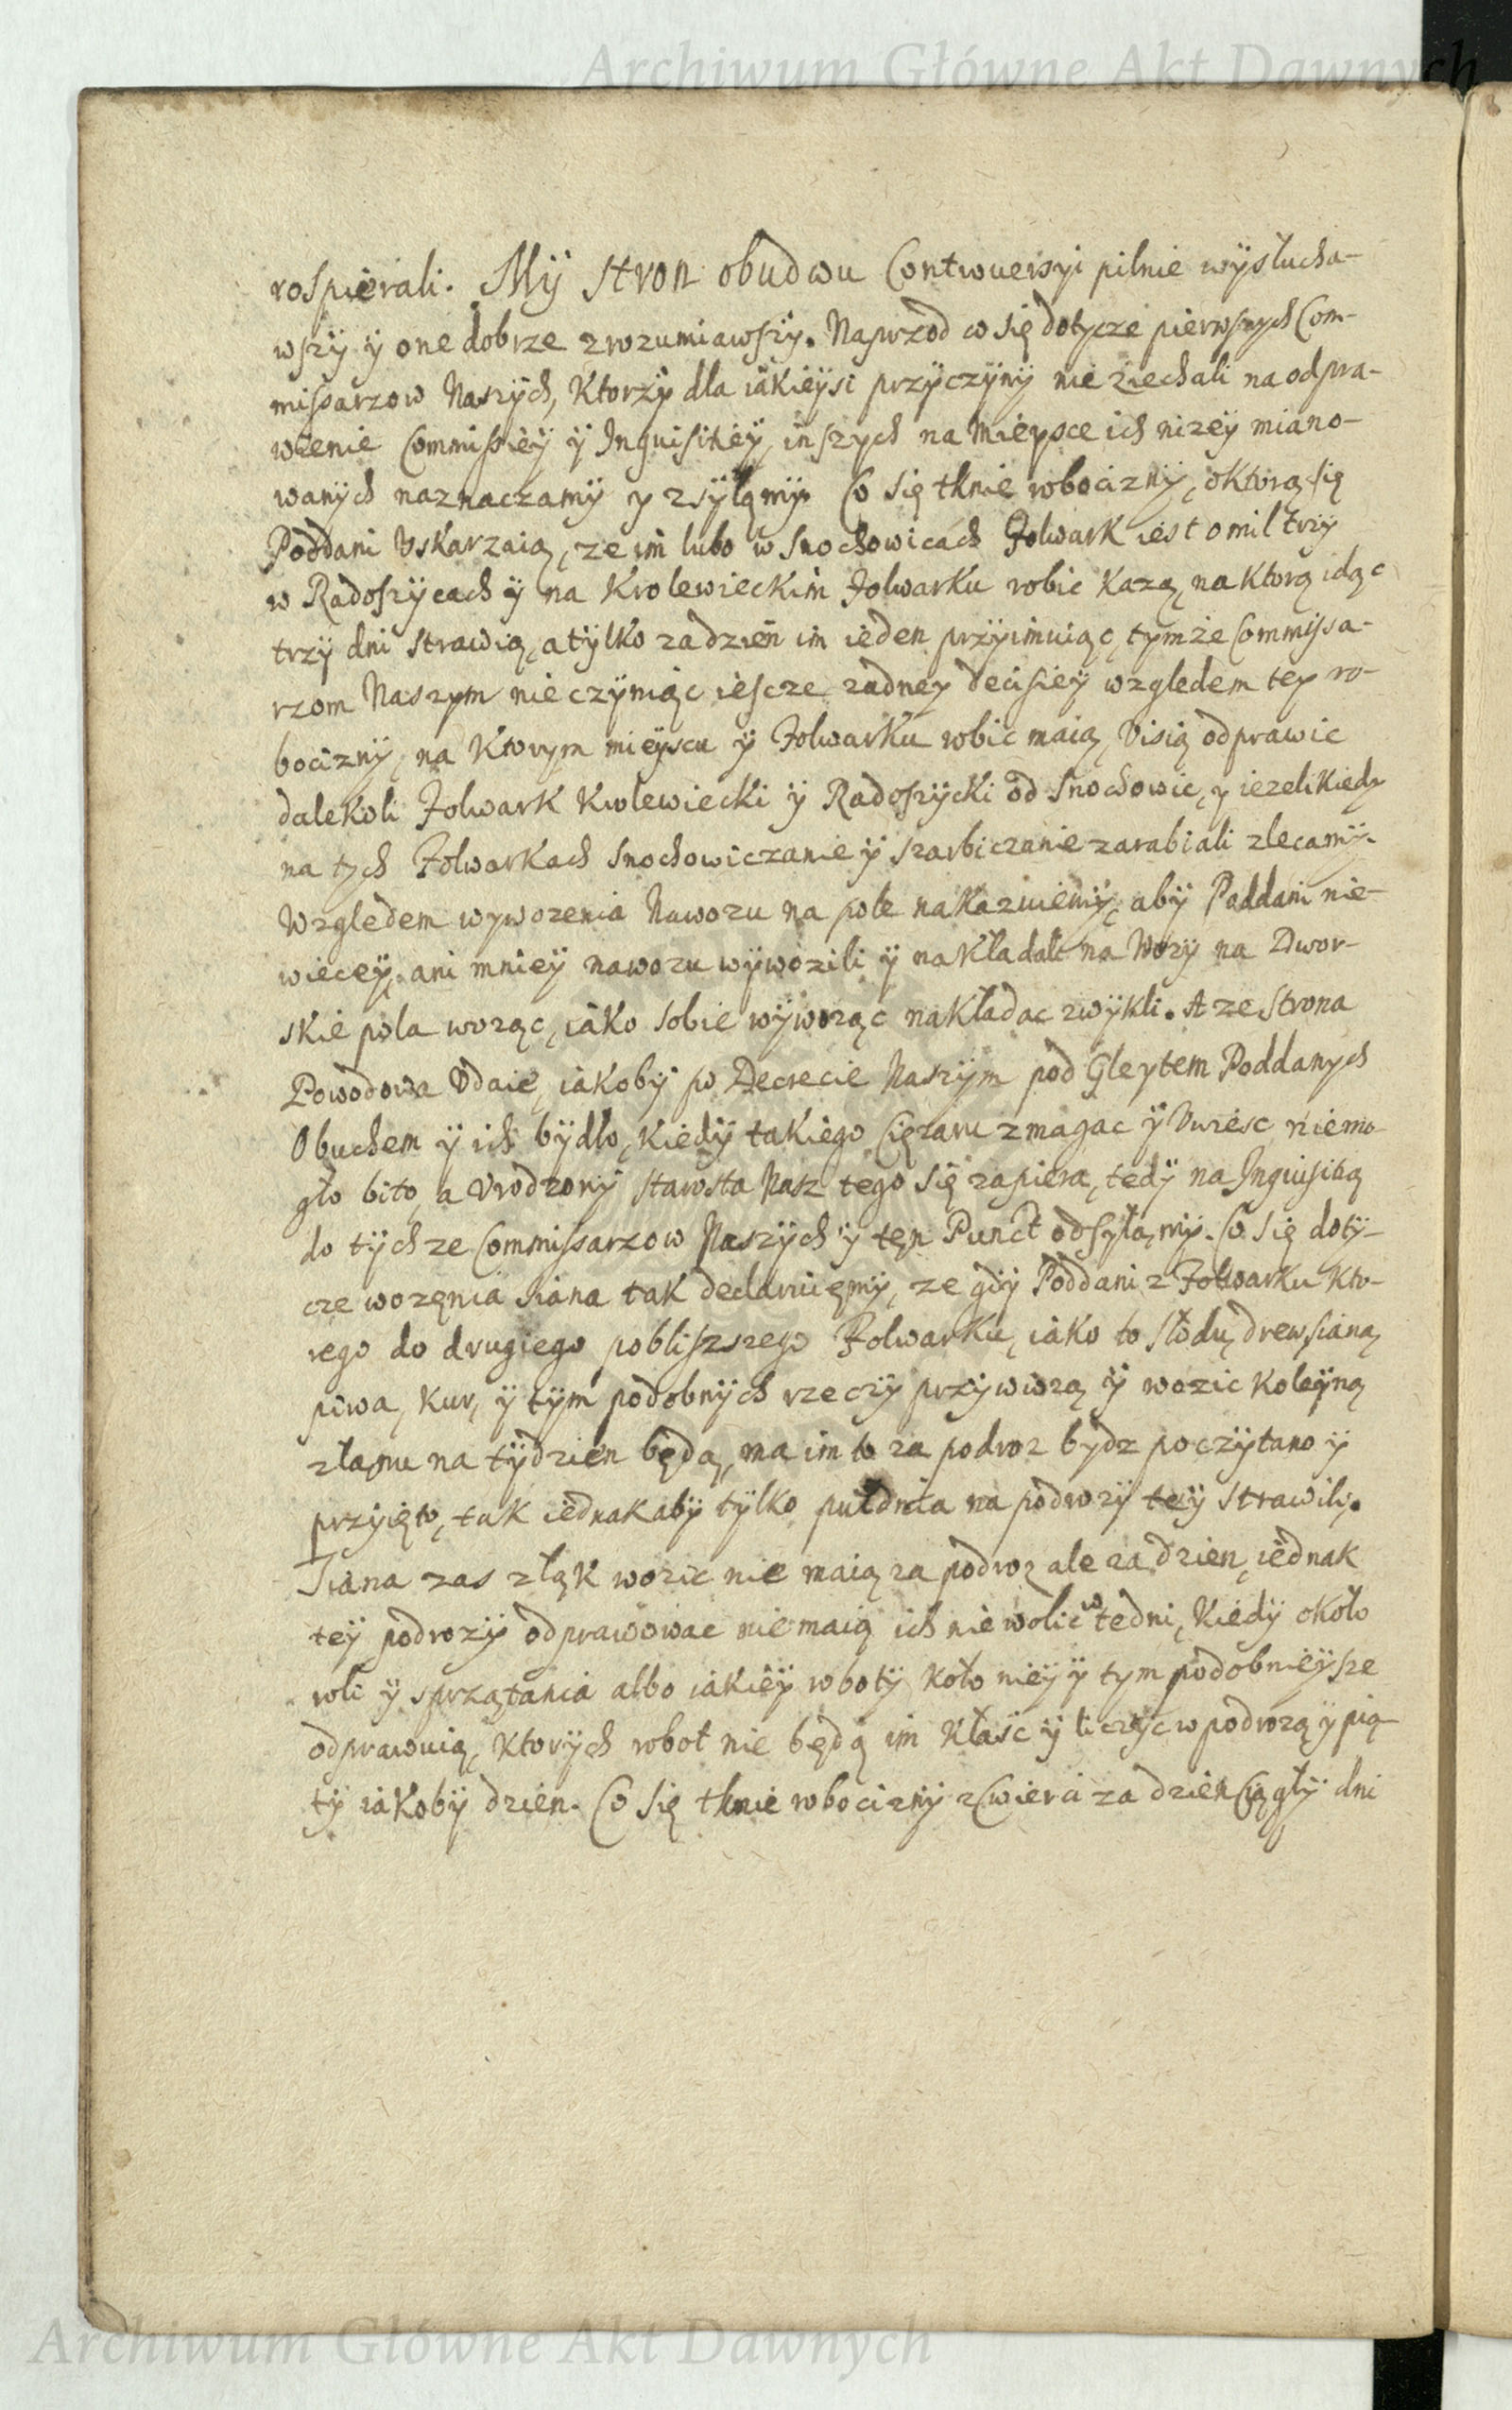 Archiwum Główne Akt Dawnych
rospierali. Mÿ stron obudwu Controuersyi pilnie wÿsłucha-
wszÿ ÿ one dobrze zrozumiawszÿ. Naprzod co się dotycze pierwszych Com-
missarzow Naszÿch, Ktorzÿ dla iakieÿsi przÿczÿnÿ nie ziechali na odpra-
wienie Commissieÿ ÿ Inquisitieÿ, inszych na mieysce ich nizeÿ miano-
wanÿch naznaczamÿ y zsÿłamÿ. Co się tknie robociznÿ, o ktorą się
Poddani Vskarzaią, ze im lubo w Snochowicach Folwark iest o mil trzÿ
w Radoszÿcach ÿ na Krolewieckim Folwarku robic kazą, na Ktorą idąc
trzÿ dni strawią, a tÿlko za dzien im ieden przÿimuiąc, tymże Commissa-
rzom Naszym nie czÿniąc iescze zadney decisieÿ względem tey ro-
bociznÿ, na Ktorym mieÿscu ÿ Folwarku robic maią, Visią odprawic
dalekoli Folwark Krolewiecki ÿ Radoszÿcki od Snochowic, y iezeli kiedy
na tych Folwarkach Snochowiczanie ÿ szarbiczanie zarabiali zlecamÿ.
Względem wywozenia Nawozu na pole nakazuiemÿ, abÿ Poddani nie-
wieceÿ, ani mnieÿ nawozu wÿwozili ÿ nakładali na Wozÿ na Dwor-
skie pola wożąc, iako sobie wÿwożąc nakładac zwÿkli. A ze strona
Powodowa Vdaie, iakobÿ po Decrecie Naszÿm pod Gleytem Poddanych
Obuchem ÿ ich bÿdło, kiedÿ takiego Cięzaru zmagac ÿ Vwiesc niemo-
gło bito, a Vrodzonÿ starosta Nasz tego się zapiera, tedÿ na Inquisitią
do tÿchze Commissarzow Naszÿch ÿ ten Punct odsyłamÿ. Co się dotÿ-
cze wozęnia siana tak declaruięmÿ, ze gdÿ Poddani z Folwarku Kto-
rego do drugiego pobliszszego Folwarku, iako to słodu, drew, siana,
piwa, kur, ÿ tÿm podobnÿch rzeczÿ przÿwiozą ÿ wozic Koleÿną
złanu na tÿdzien będą, ma im to za podroz bydz poczÿtano ÿ
przÿięto, tak iednak abÿ tÿlko pułdnia na podrozÿ teÿ strawili.
Siana zas złąk wozic nie maią za podroz ale za dzien, iednak
teÿ podrozÿ odprawowac nie maią ich niewolic w te dni, kiedÿ około
roli ÿ sprzątania albo iakieÿ robotÿ koło nieÿ ÿ tym podobnieÿsze
odprawuią, ktorÿch robot nie będą im kłaśc ÿ liczyc w podrozą ÿ pią-
tÿ iakobÿ dzien. Co się tknie robociznÿ zCwierci za dzien Ciągłÿ dni
Archiwum Główne Akt Dawnych